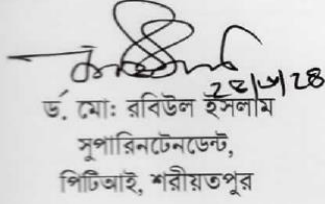 ড. মোঃ রবিউল ইসলাম
সুপারিনটেনডেন্ট,
পিটিআই, শরীয়তপুর